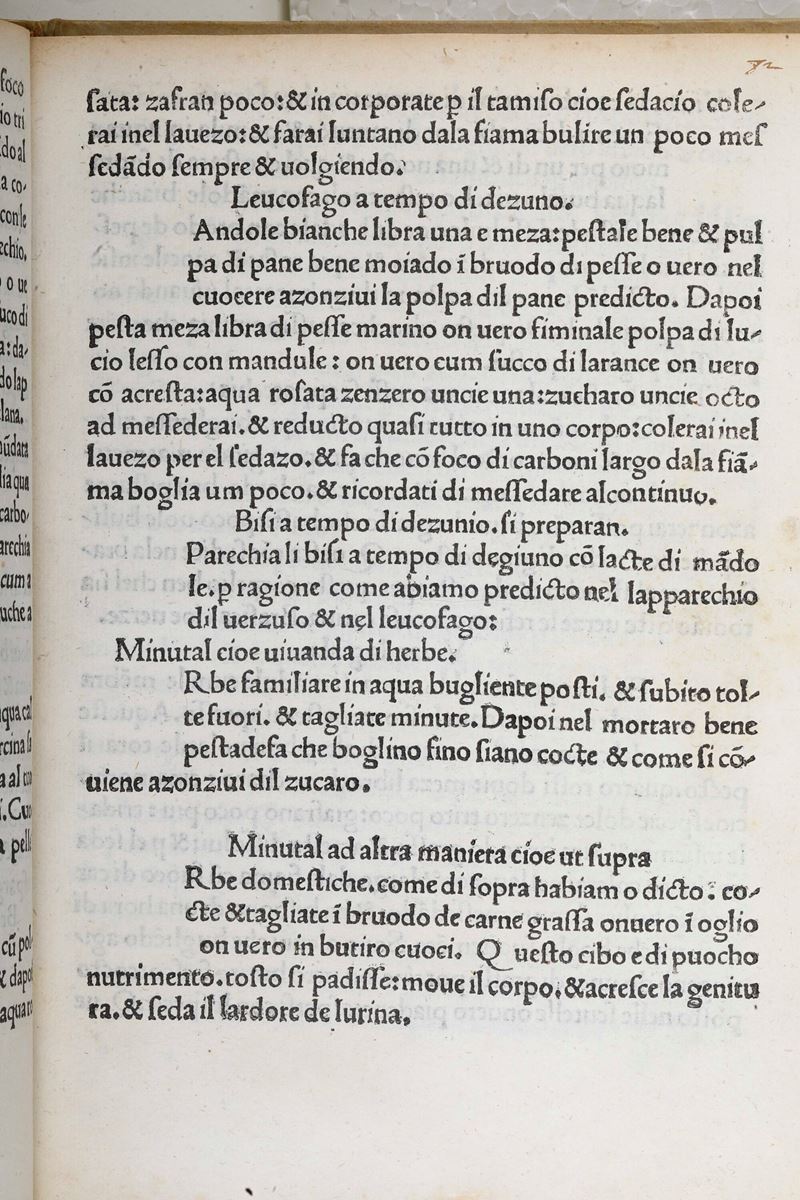 72
ſata: zafran poco:& in corporate p il tamiſo cioe ſedacio cole-
rai inel lauezo:& farai luntano dala fiama bulire un poco meſ
ſedãdo ſempre & uolgiendo.
Leucofago a tempo di dezuno.
Andole bianche libra una e meza:peſtale bene & pul
pa di pane bene moiado ĩ bruodo di peſſe o uero nel
cuocere azonziui la polpa dil pane predicto. Dapoi
peſta meza libra di peſſe marino on uero fiminale polpa di lu-
cio leſſo con mandule: on uero cum ſucco di larance on uero
cõ acreſta:aqua roſata zenzero uncie una:zucharo uncie octo
ad meſſederai.& reducto quaſi tutto in uno corpo:colerai inel
lauezo per el ſedazo.& fa che cõ foco di carboni largo dala fiã-
ma boglia um poco.& ricordati di meſſedare alcontinuo.
Biſi a tempo di dezunio.ſi preparan.
Parechia li biſi a tempo di degiuno cõ lacte di mãdo
le.p ragione come abiamo predicto nel lapparechio
dil uerzuſo & nel leucofago:
Minutal cioe uiuanda di herbe.
Rbe familiare in aqua bugliente poſti. & ſubito tol-
te fuori. & tagliate minute.Dapoi nel mortaro bene
peſtadefa che boglino fino ſiano cocte & come ſi cõ-
uiene azonziui dil zucaro.
Minutal ad altra maniera cioe ut ſupra
Rbe domeſtiche.come di ſopra habiam o dicto: co-
cte &tagliate ĩ bruodo de carne graſſa onuero ĩ oglio
on uero in butiro cuoci. Queſto cibo e di puocho
nutrimento.toſto ſi padiſſe:moue il corpo.&acreſce la genitu
ra.& ſeda il lardore de lurina.